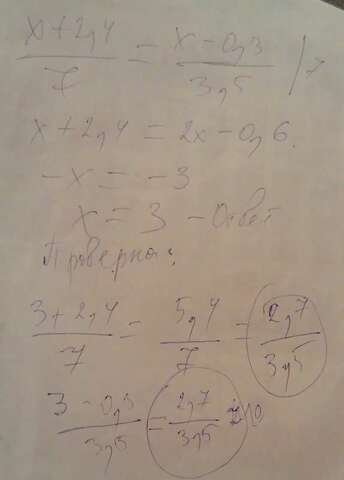 (x+2,4)/7 = (x-0,3)/3,5 | 7
x+2,4 = 2x-0,6.
-x = -3
x = 3 - Ответ
Проверка:
(3+2,4)/7 = 5,4/7 = 2,7/3,5
(3-0,3)/3,5 = 2,7/3,5